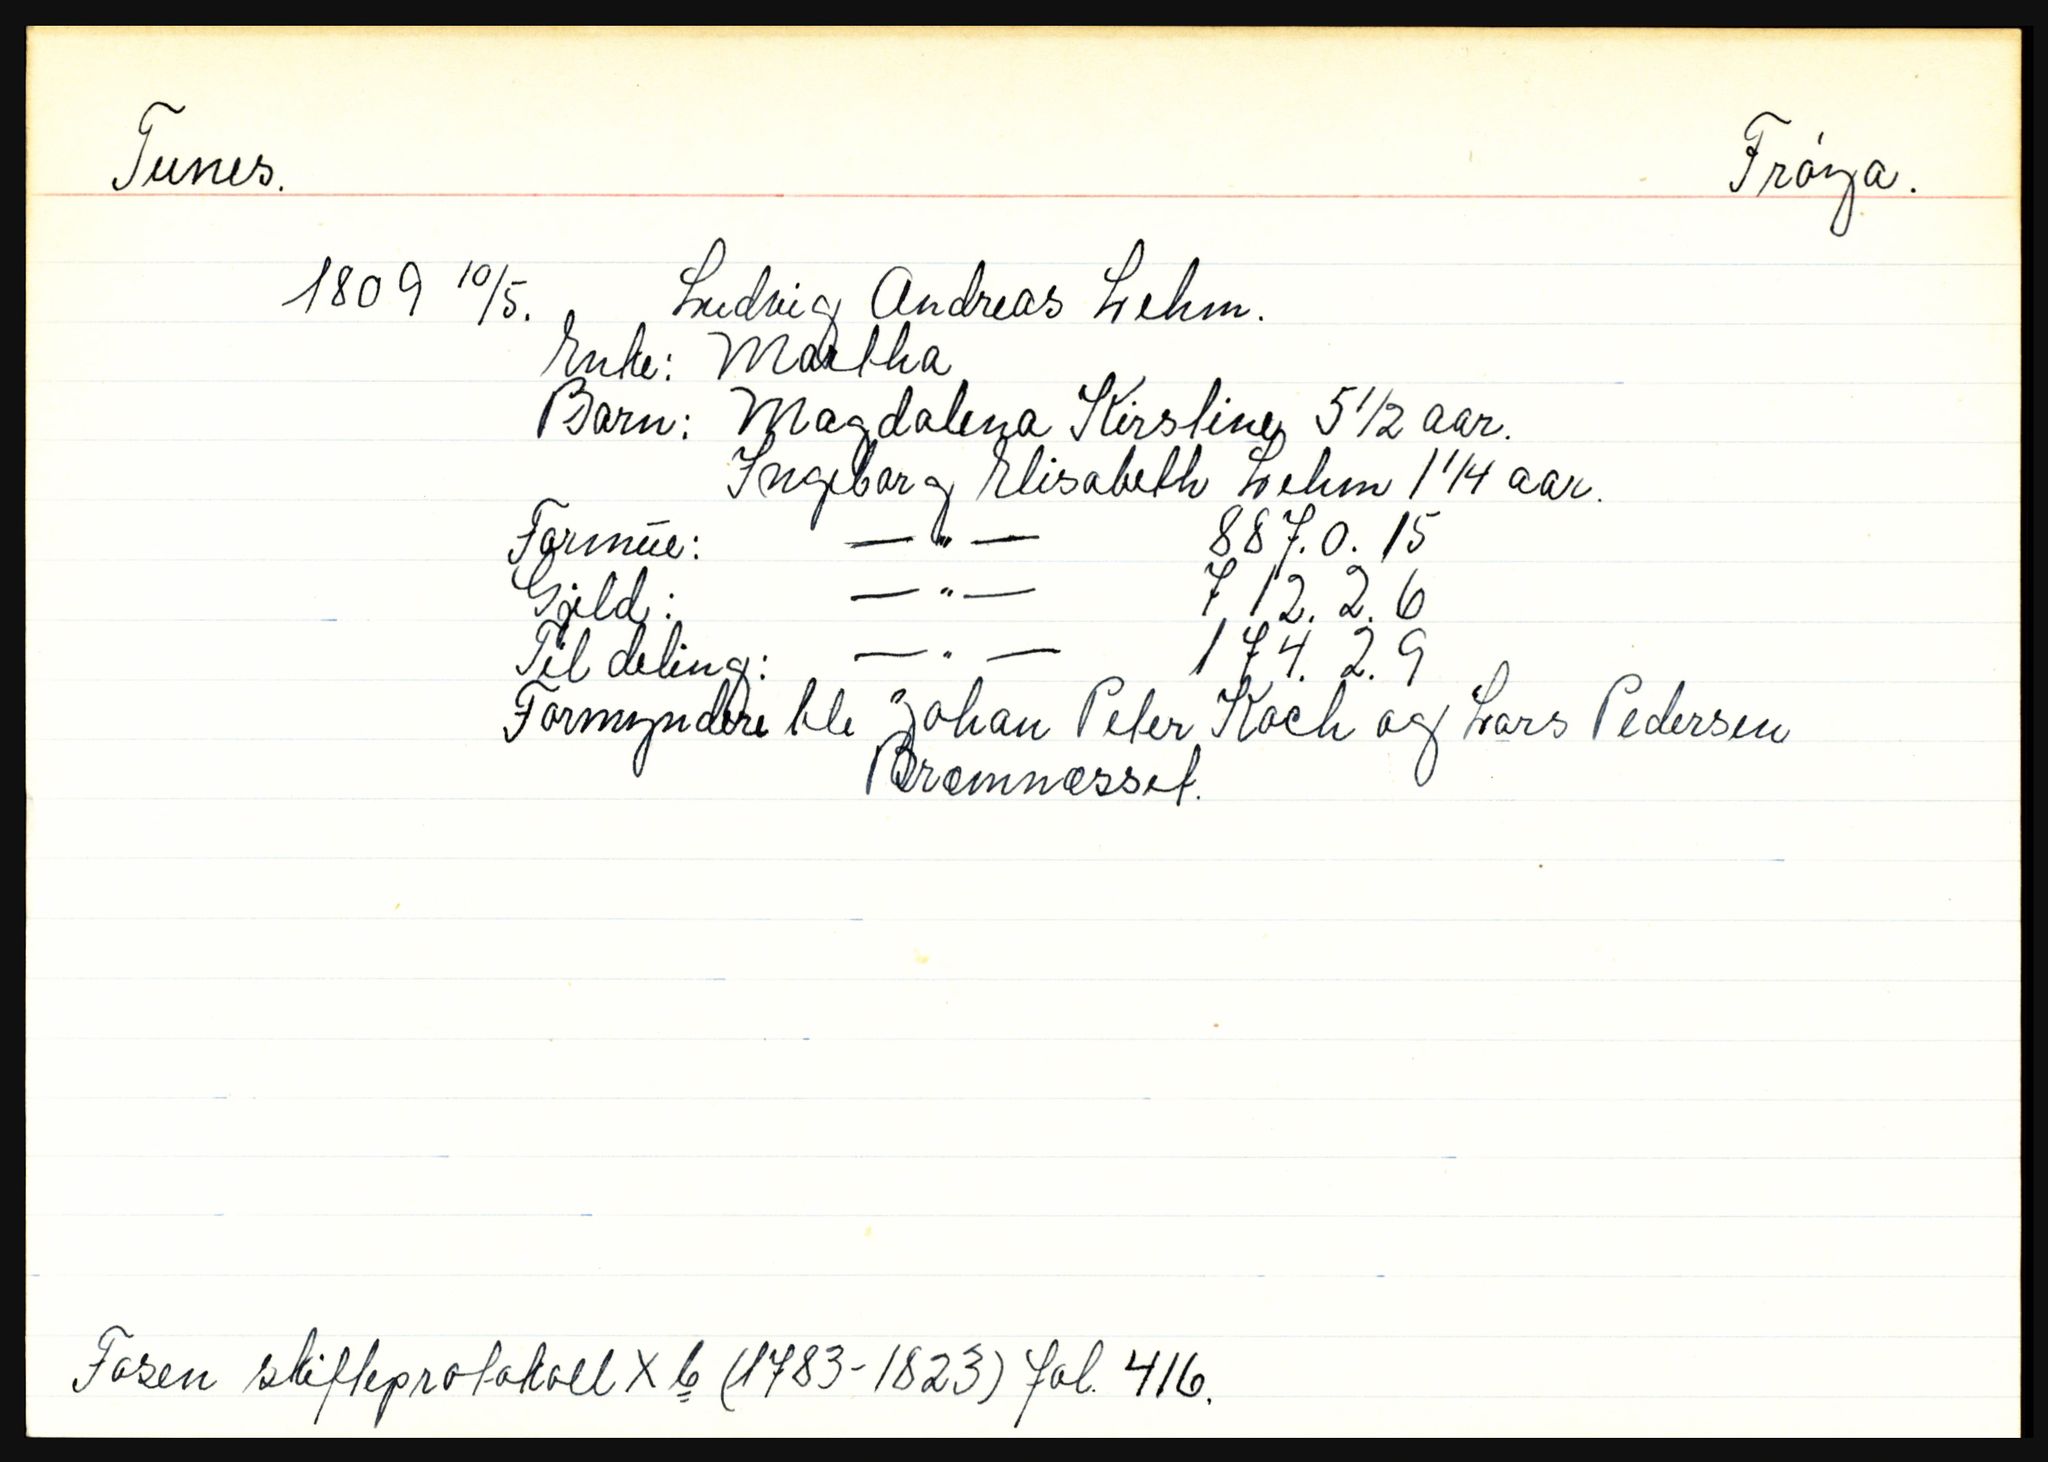 Tunes. Frøya.
1809 10/5. Ludvig Andreas Lehm.
Enke: Martha
Barn: Magdalena Kirstine 5 1/2 aar.
Ingeborg Elisabeth Lehm 1 1/4 aar.
Formue: — " — 887. 0. 15
Gjeld: — " — 712. 2. 6
Til deling: — " — 174. 2. 9
Formyndere ble Johan Peter Koch og Lars Pedersen
Bremnæsset.
Fosen skifteprotokoll X b (1783-1823) fol. 416.